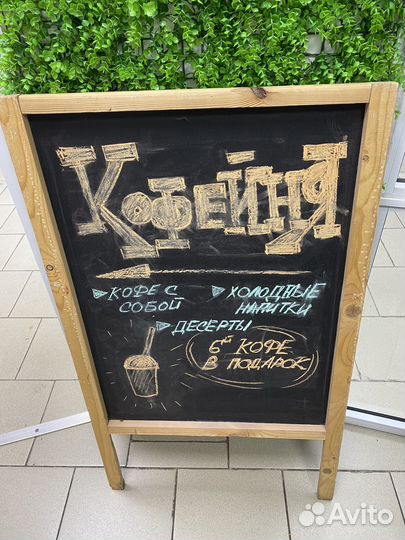 КОФЕЙНЯ
КОФЕ С СОБОЙ
ХОЛОДНЫЕ НАПИТКИ
ДЕСЕРТЫ
6й КОФЕ
В ПОДАРОК
Avito